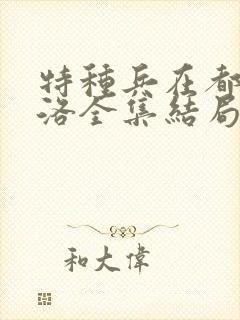 特種兵在都
洛全集結局
和大偉